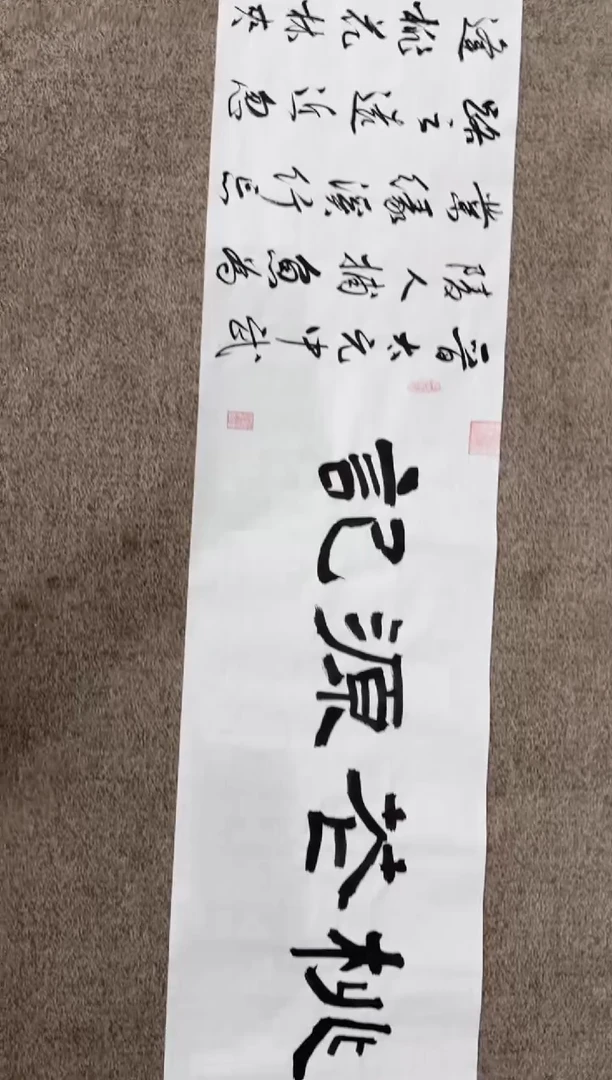 桃花源記
晉太元中武
陵人捕魚為
業緣溪行忘
路之遠近忽
逢桃花林夾